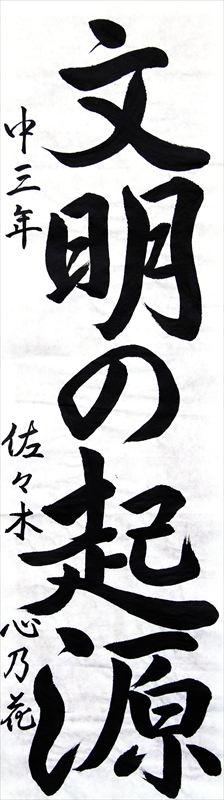 文明の起源
中三年 佐々木 心乃花